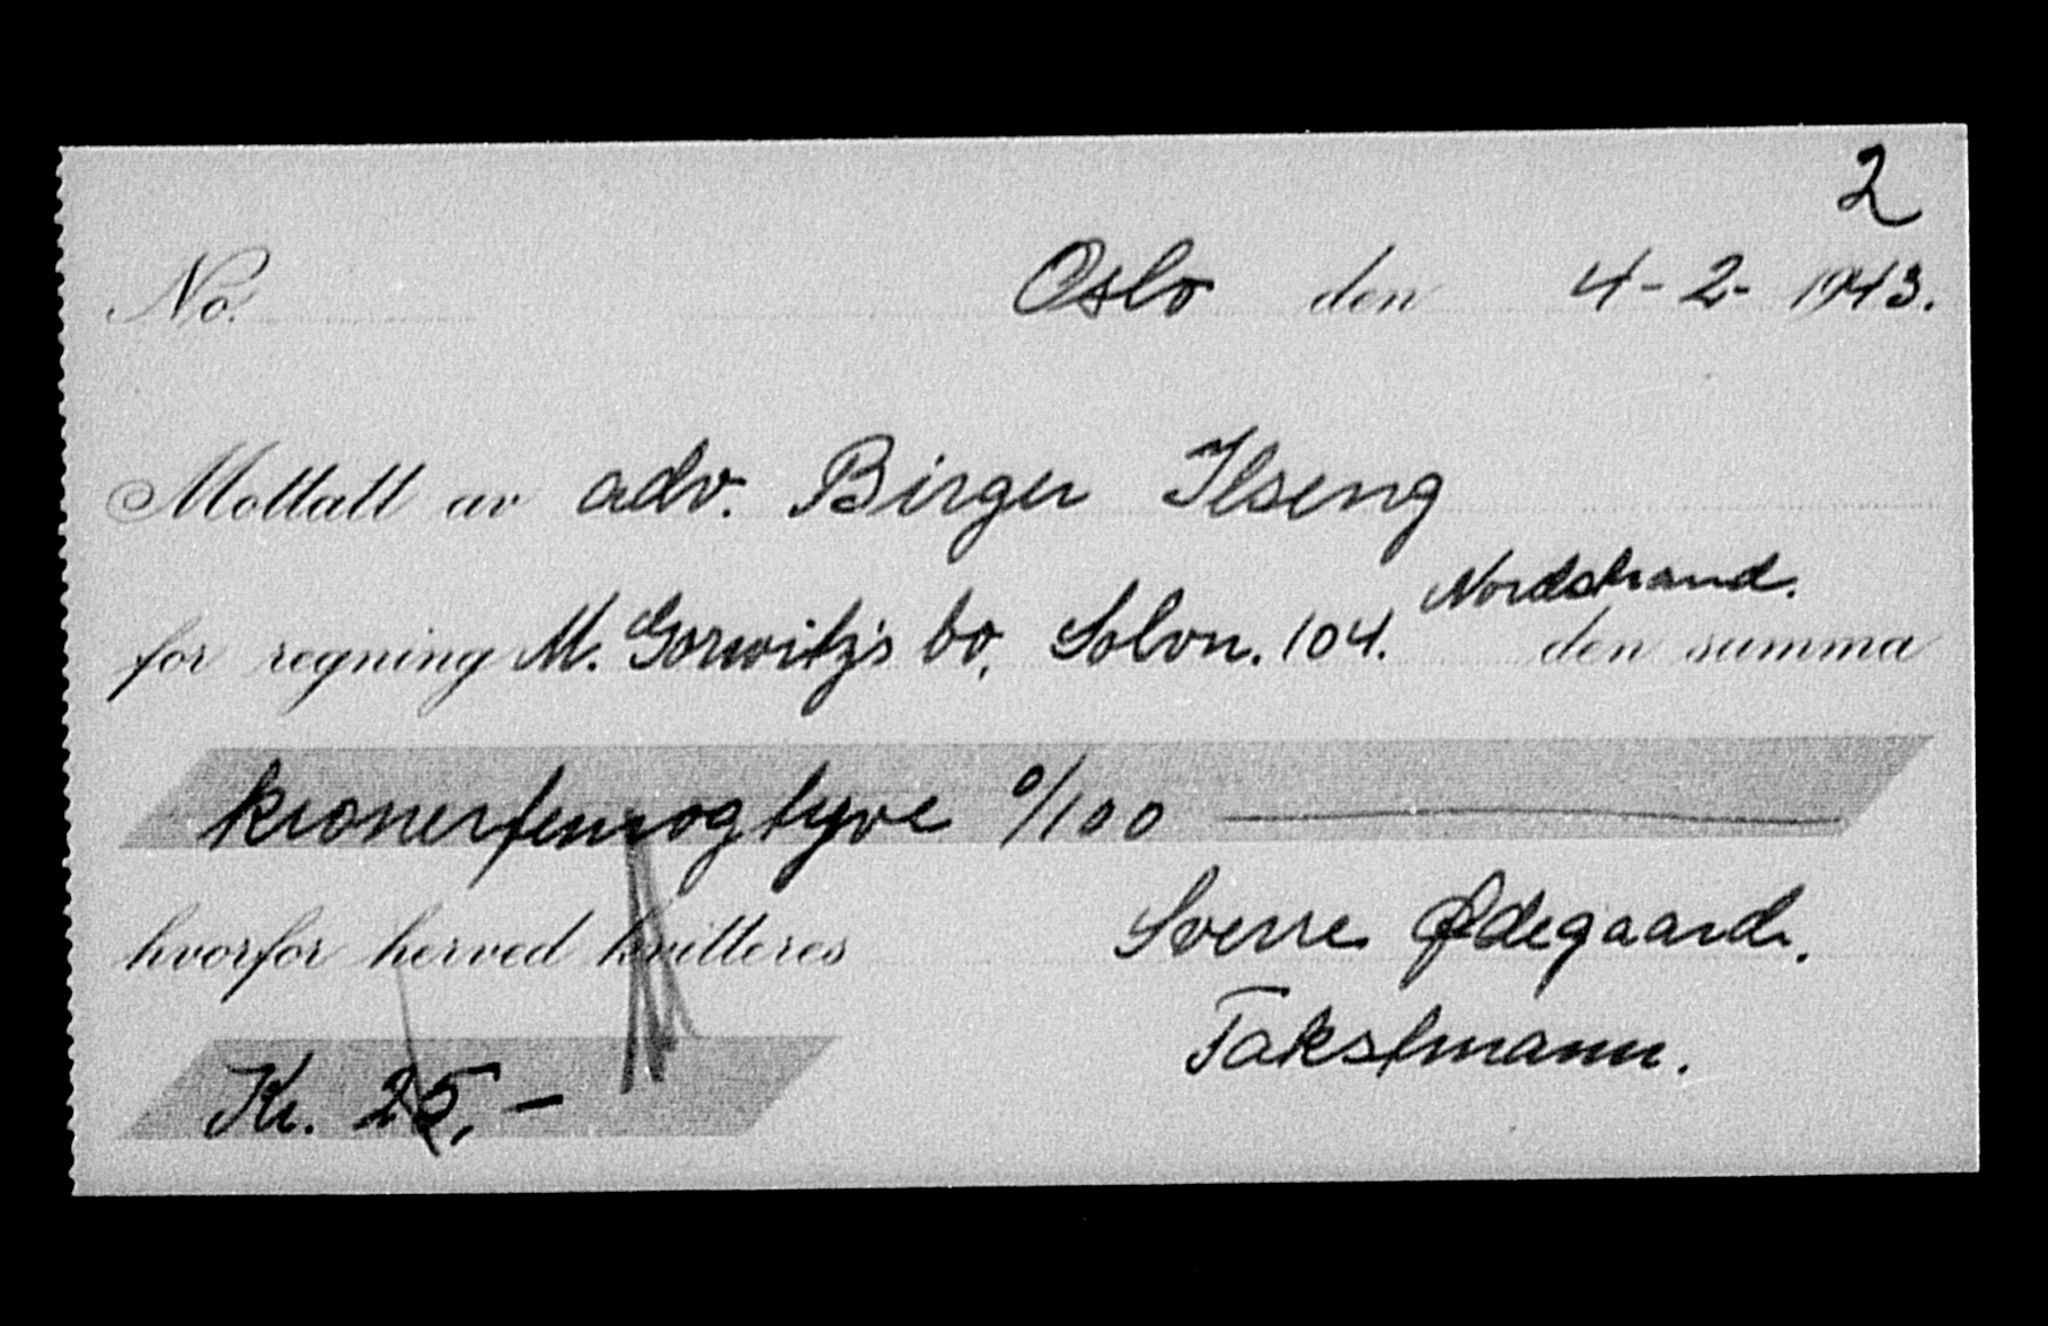 2
No. Oslo den 4-2-1943.
Mottatt av adv. Birger Ilseng
Nordstrand.
for regning M. Gorwitz's bo, Solvn. 104. den summa
kronerfemogtyve 0/100
hvorfor herved kvitteres Sverre Ødegaard.
Takstmann.
Kr. 25,-